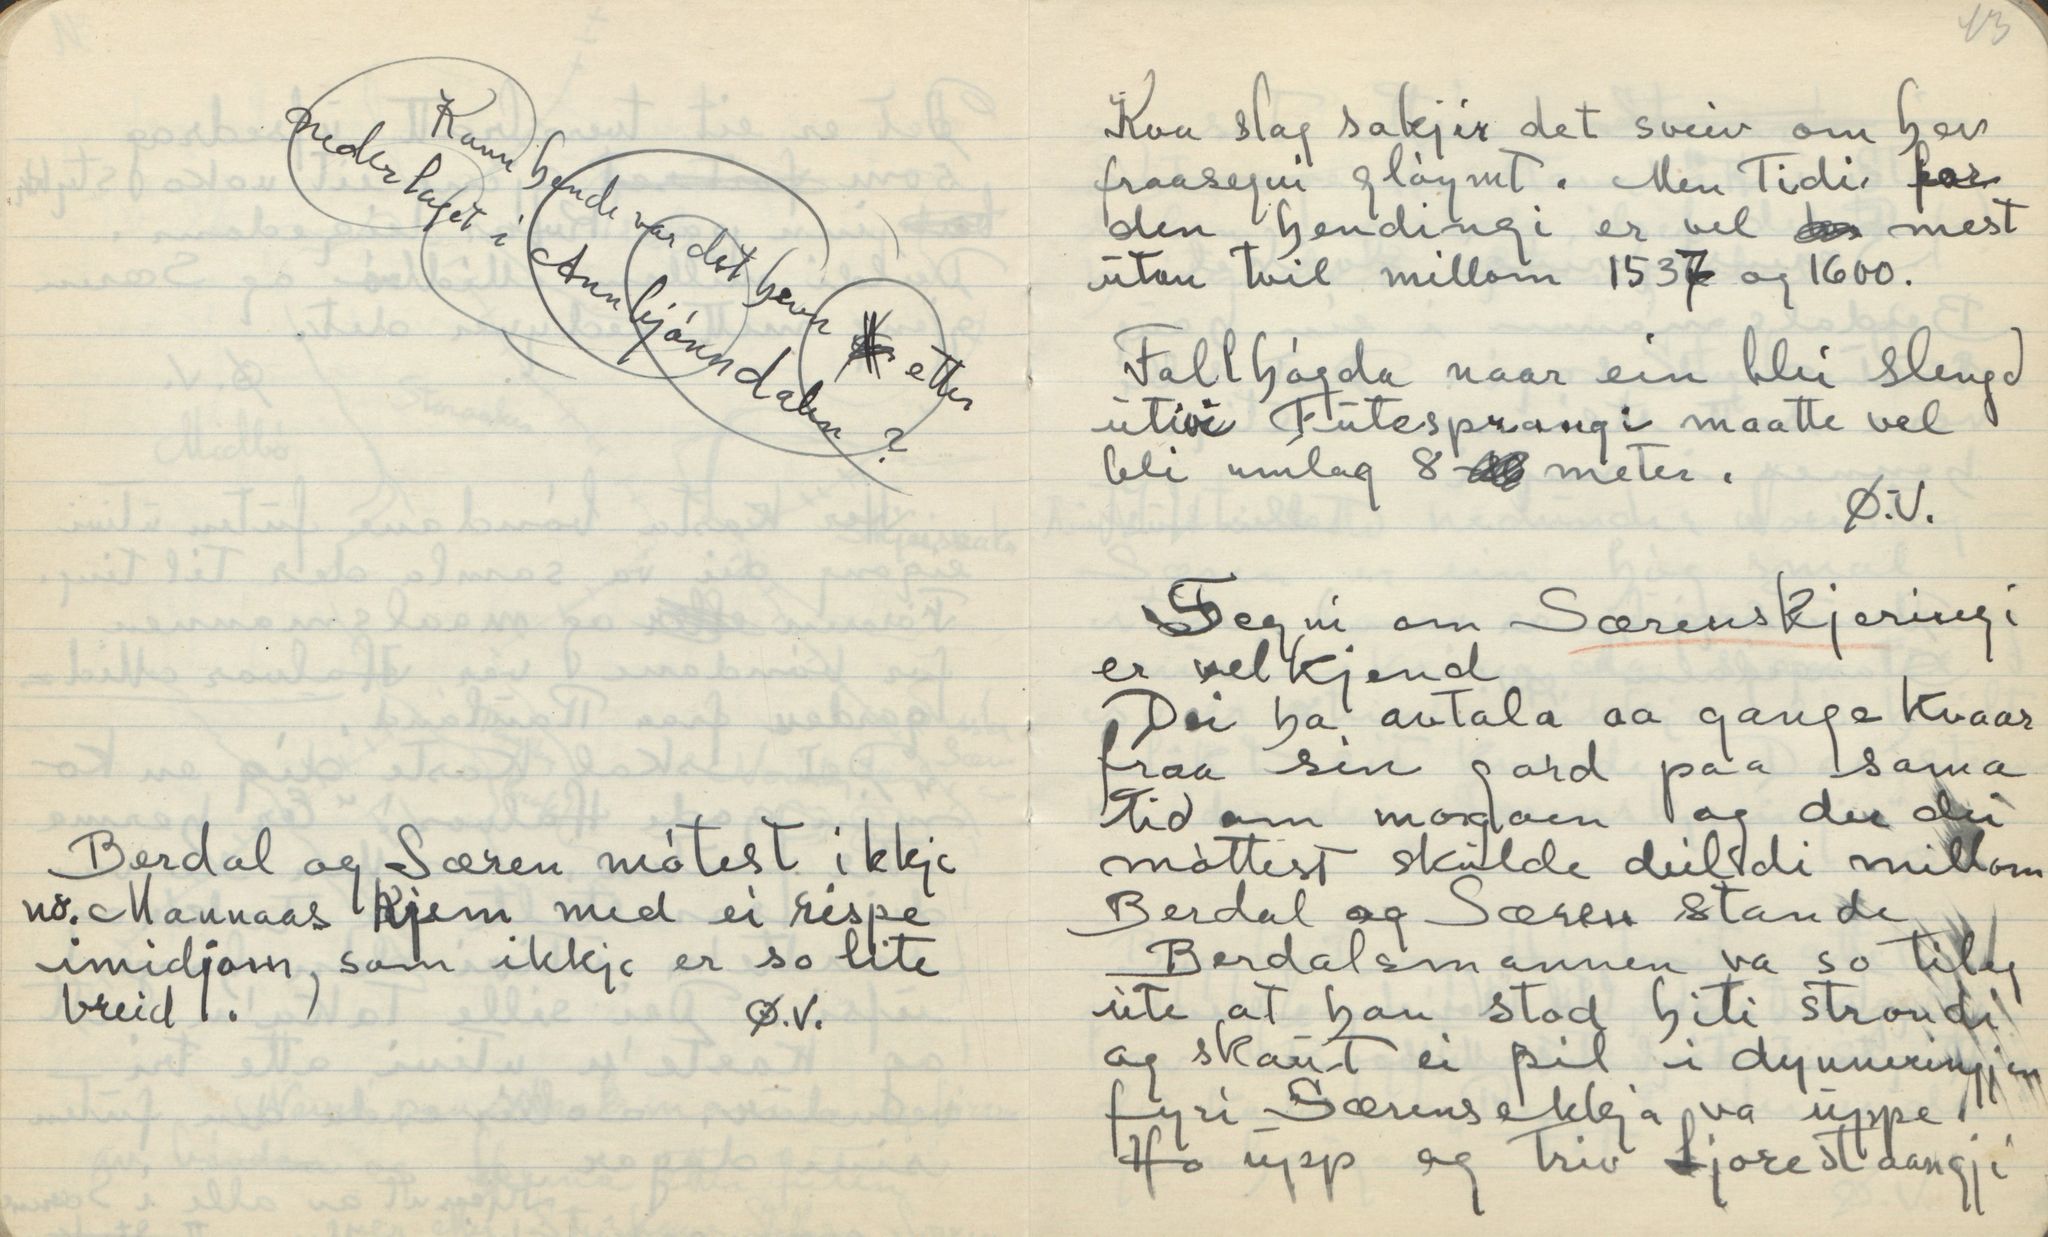 Kann hende var det herr etter
nederlaget i Annbjónndalen?
Berdal og Særen mótest ikkje
no. Mannaas kjem med ei rispe
imidjom, som ikkje er so lite
breid.
Ø.V.
13
Kva slag sakjir det sveiv om hev
fraasegni gløymt. Men Tidi for
den hendingi er vel mest
utan tvil millom 1537 og 1600.
Fallhógda naar ein blei slengd
utivi Futesprangi maatte vel
bli umlag 8 meter.
Ø.V.
Segni om Særenskjeringi
er velkjend
Dei ha avtala aa gange kvaar
fraa sin gard paa sama
tid om morgoen og der dei
mòttest skulde deildi millom
Berdal og Særen stande
Berdalsmannen va so tileg
ute at han stod hiti strondi
og skaut ei pil i dynneringjen
fyri Særensekkja va uppe.
Ho upp og triv fjorestaangji